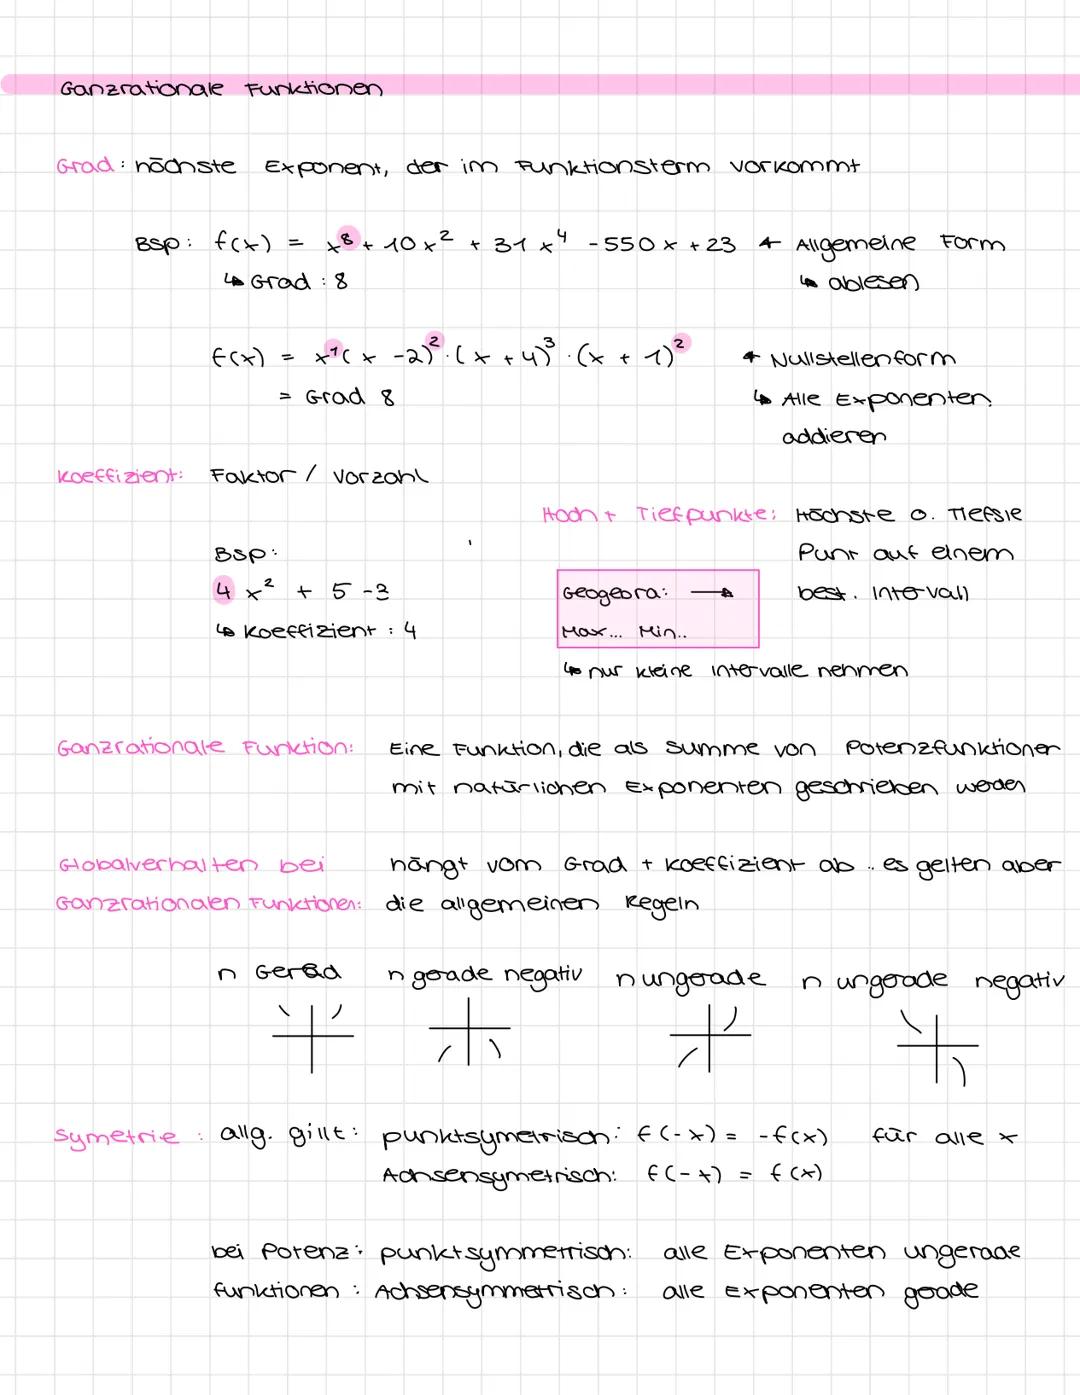 Ganzrationale Funktionen
Grad: höchste Exponent, der im Funktionsterm vorkommt
Bsp: f(x) = x⁸ + 10x² + 31x⁴ - 550x + 23 ← Allgemeine Form
↳ Grad: 8 ↳ ablesen
f(x) = x¹(x - 2)² · (x + 4)³ · (x + 1)² ← Nullstellenform
= Grad 8 ↳ Alle Exponenten
addieren
Koeffizient: Faktor / Vorzahl
Hoch + Tiefpunkte: Höchste o. Tiefste
Bsp: Punkt auf einem
4x² + 5 - 3 Geogebra: → best. Intervall
↳ Koeffizient: 4 Max... Min..
↳ nur kleine Intervalle nehmen
Ganzrationale Funktion: Eine Funktion, die als Summe von Potenzfunktionen
mit natürlichen Exponenten geschrieben werden
Globalverhalten bei hängt vom Grad + Koeffizient ab .. es gelten aber
Ganzrationalen Funktionen: die allgemeinen Regeln
n Gerad n gerade negativ n ungerade n ungerade negativ
Symetrie: allg. gillt: punktsymetrisch: f(-x) = -f(x) für alle x
Achsensymetrisch: f(-x) = f(x)
bei Potenz: punktsymmetrisch: alle Exponenten ungerade
funktionen: Achsensymmetrisch: alle Exponenten gerade